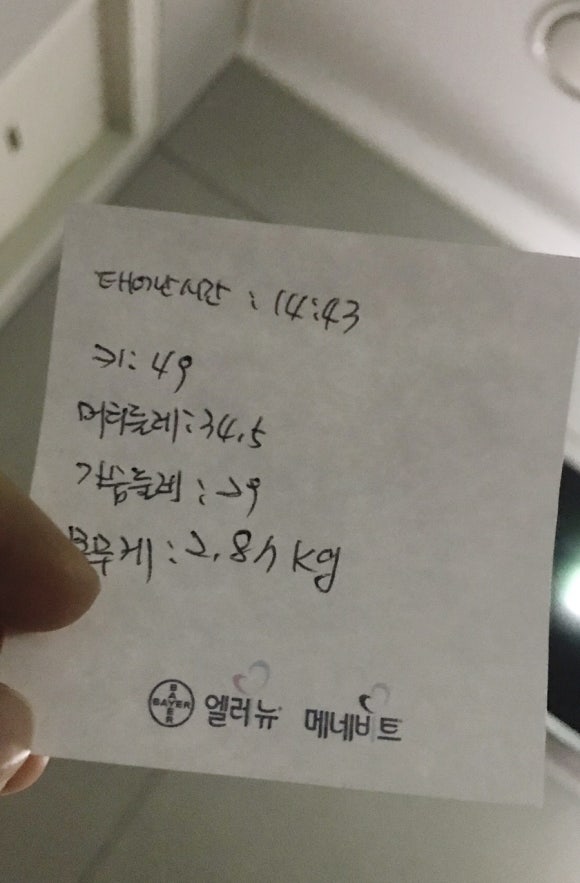 태어난시간 : 14:43
키: 49
머리둘레: 34.5
가슴둘레 : 29
몸무게 : 2.84 kg
BAYER
BAYER 엘러뉴 메네비트